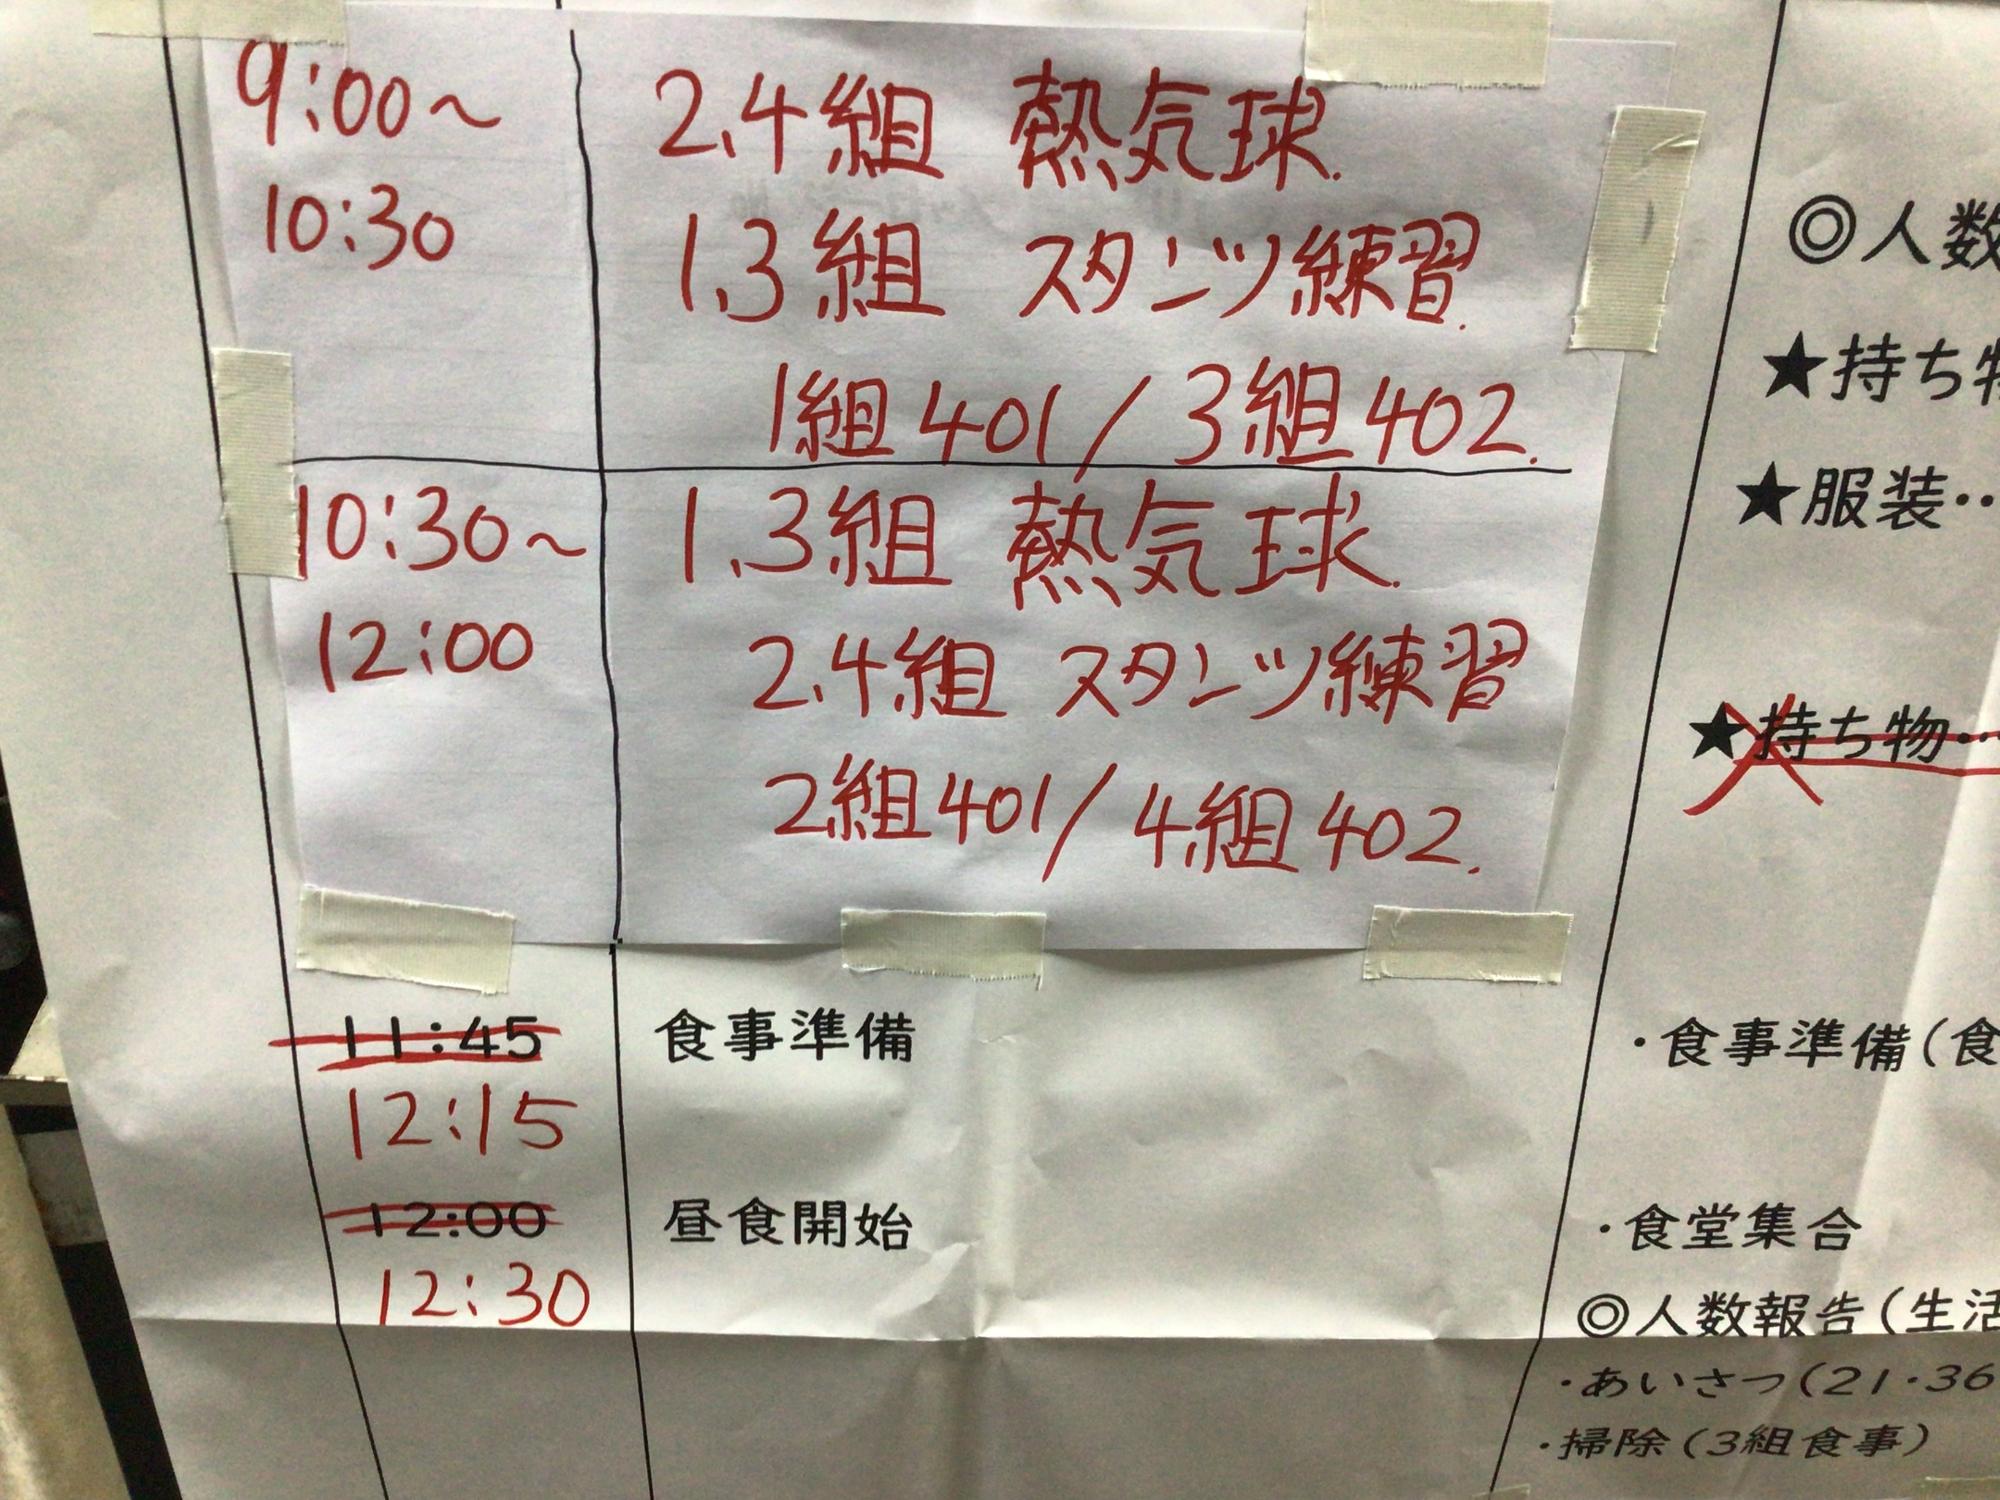 9:00～
10:30
2,4組 熱気球.
1,3組 スタンツ練習.
1組401/3組402.
10:30～
12:00
1,3組 熱気球.
2,4組 スタンツ練習
2組401/4組402.
11:45
12:15
食事準備
12:00
12:30
昼食開始
◎人数
★持ち物
★服装‥
★持ち物‥
・食事準備(食
・食堂集合
◎人数報告(生活
・あいさつ(21・36
・掃除(3組食事)